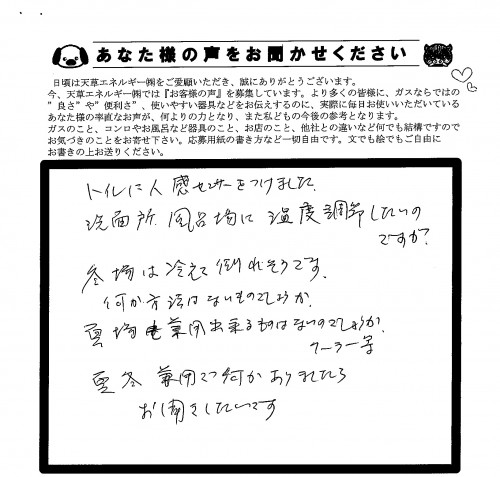 あなた様の声をお聞かせください
日頃は天草エネルギー㈱をご愛顧いただき、誠にありがとうございます。
今、天草エネルギー㈱では『お客様の声』を募集しています。より多くの皆様に、ガスならではの
”良さ”や”便利さ”、使いやすい器具などをお伝えするのに、実際に毎日お使いいただいている
あなた様の率直なお声が、何よりの力となり、また私どもの今後の参考となります。
ガスのこと、コンロやお風呂など器具のこと、お店のこと、他社との違いなど何でも結構ですので
お気づきのことをお寄せ下さい。応募用紙の書き方など一切自由です。文でも絵でもご自由に
お書きの上お送りください。
トイレに人感センサーをつけました。
洗面所、風呂場に温度調節したいの
ですが?
冬場は冷えて倒れそうです。
何か方法はないものでしょうか。
夏場も兼用出来るものはないのでしょうか。
クーラー等
夏冬兼用で何かありましたら
お聞きしたいです